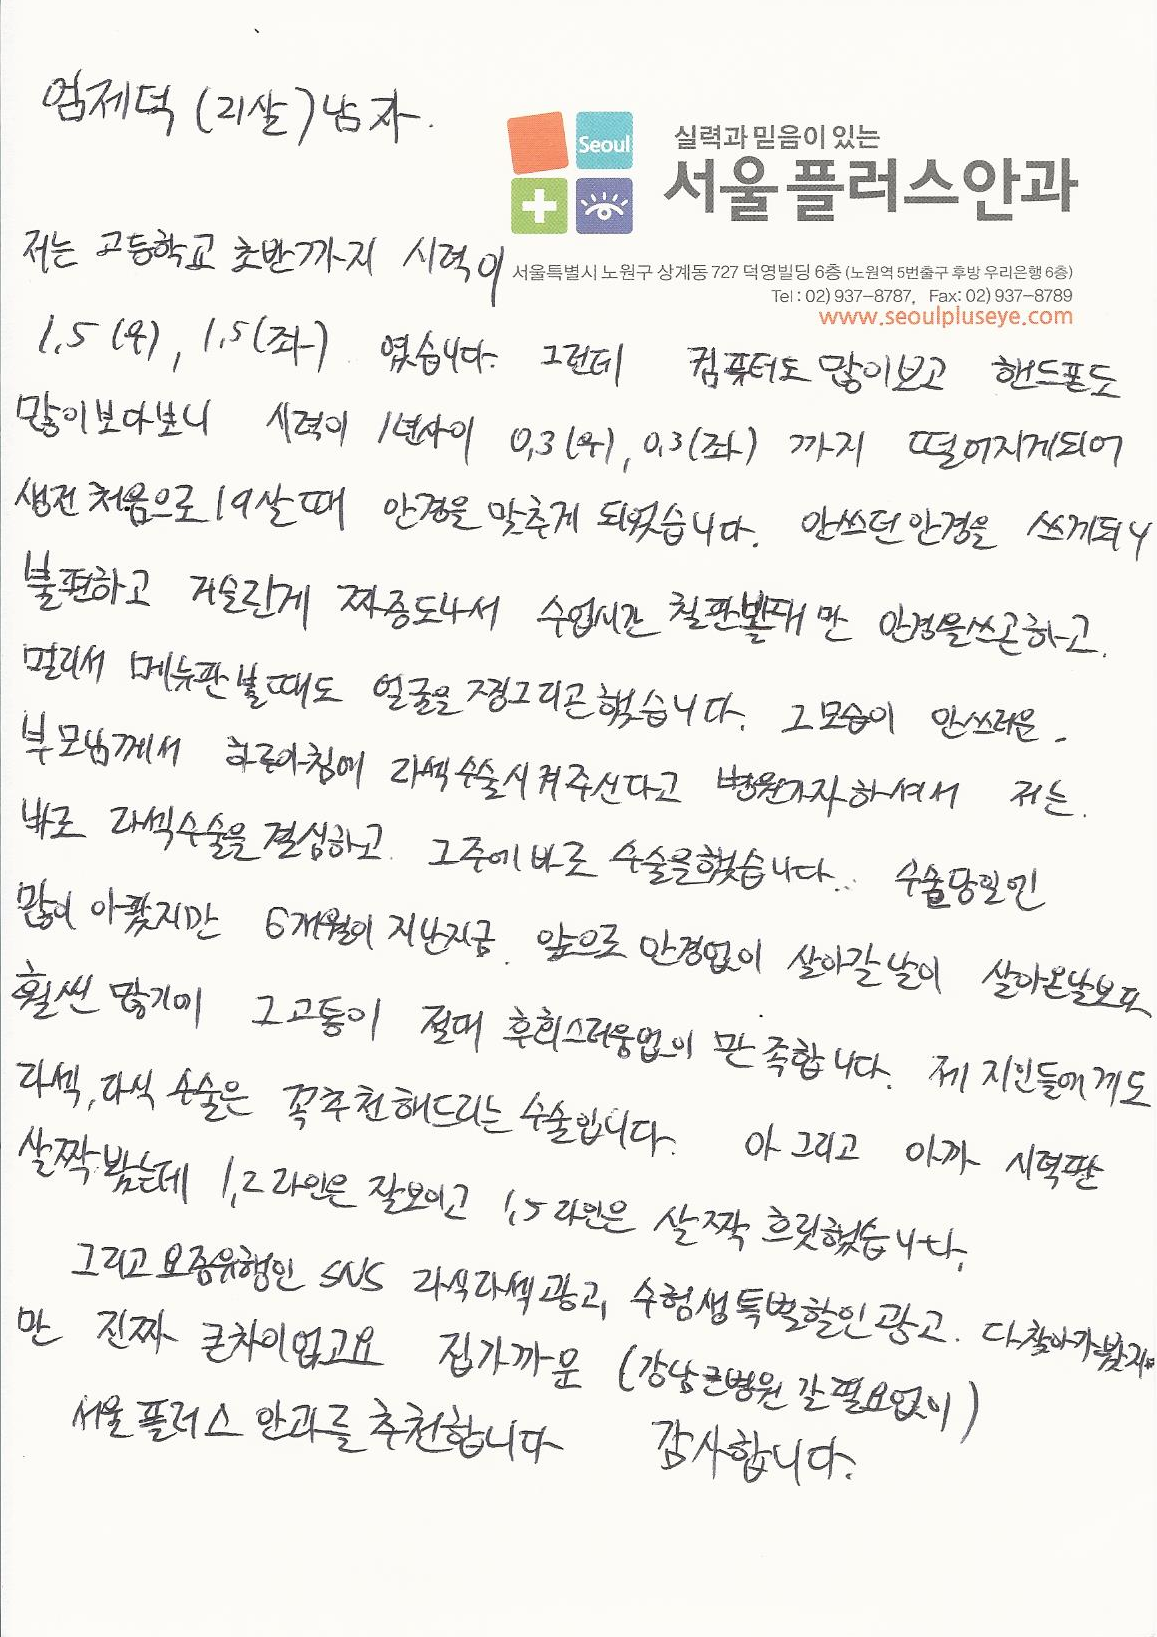 엄제덕 (21살) 남자.
Seoul
실력과 믿음이 있는
서울플러스안과
서울특별시 노원구 상계동 727 덕영빌딩 6층 (노원역 5번출구 후방 우리은행 6층)
Tel : 02) 937-8787, Fax: 02) 937-8789
www.seoulpluseye.com
저는 고등학교 초반까지 시력이
1.5 (우), 1.5 (좌) 였습니다. 그런데 컴퓨터도 많이보고 핸드폰도
많이보다보니 시력이 1년사이 0.3 (우), 0.3 (좌) 까지 떨어지게되어
생전 처음으로 19살때 안경을 맞추게 되었습니다. 안쓰던안경을 쓰게되니
불편하고 거슬란게 짜증도나서 수업시간 칠판볼때만 안경을쓰곤하고.
멀리서 메뉴판볼때도 얼굴을 찡그리곤했습니다. 그모습이 안쓰러운.
부모님께서 하루아침에 라섹수술시켜주신다고 병원가자하셔서 저는.
바로 라섹수술을 결심하고 그주에바로 수술을했습니다.. 수술당일엔
많이 아팠지만 6개월이 지난지금. 앞으로 안경없이 살아갈날이 살아온날보다
훨씬 많기에 그고통이 절대 후회스러움없이 만족합니다. 제 지인들에게도
라섹, 라식 수술은 꼭추천해드리는 수술입니다. 아 그리고 아까 시력판
살짝봤는데 1.2 라인은 잘보이고 1.5 라인은 살짝 흐릿했습니다.
그리고 요즘유행인 SNS 라식라섹광고, 수험생특별할인광고. 다찾아가봤지
만 진짜 큰차이없고요 집가까운 (강남큰병원 갈필요없이)
서울플러스 안과를 추천합니다 감사합니다.